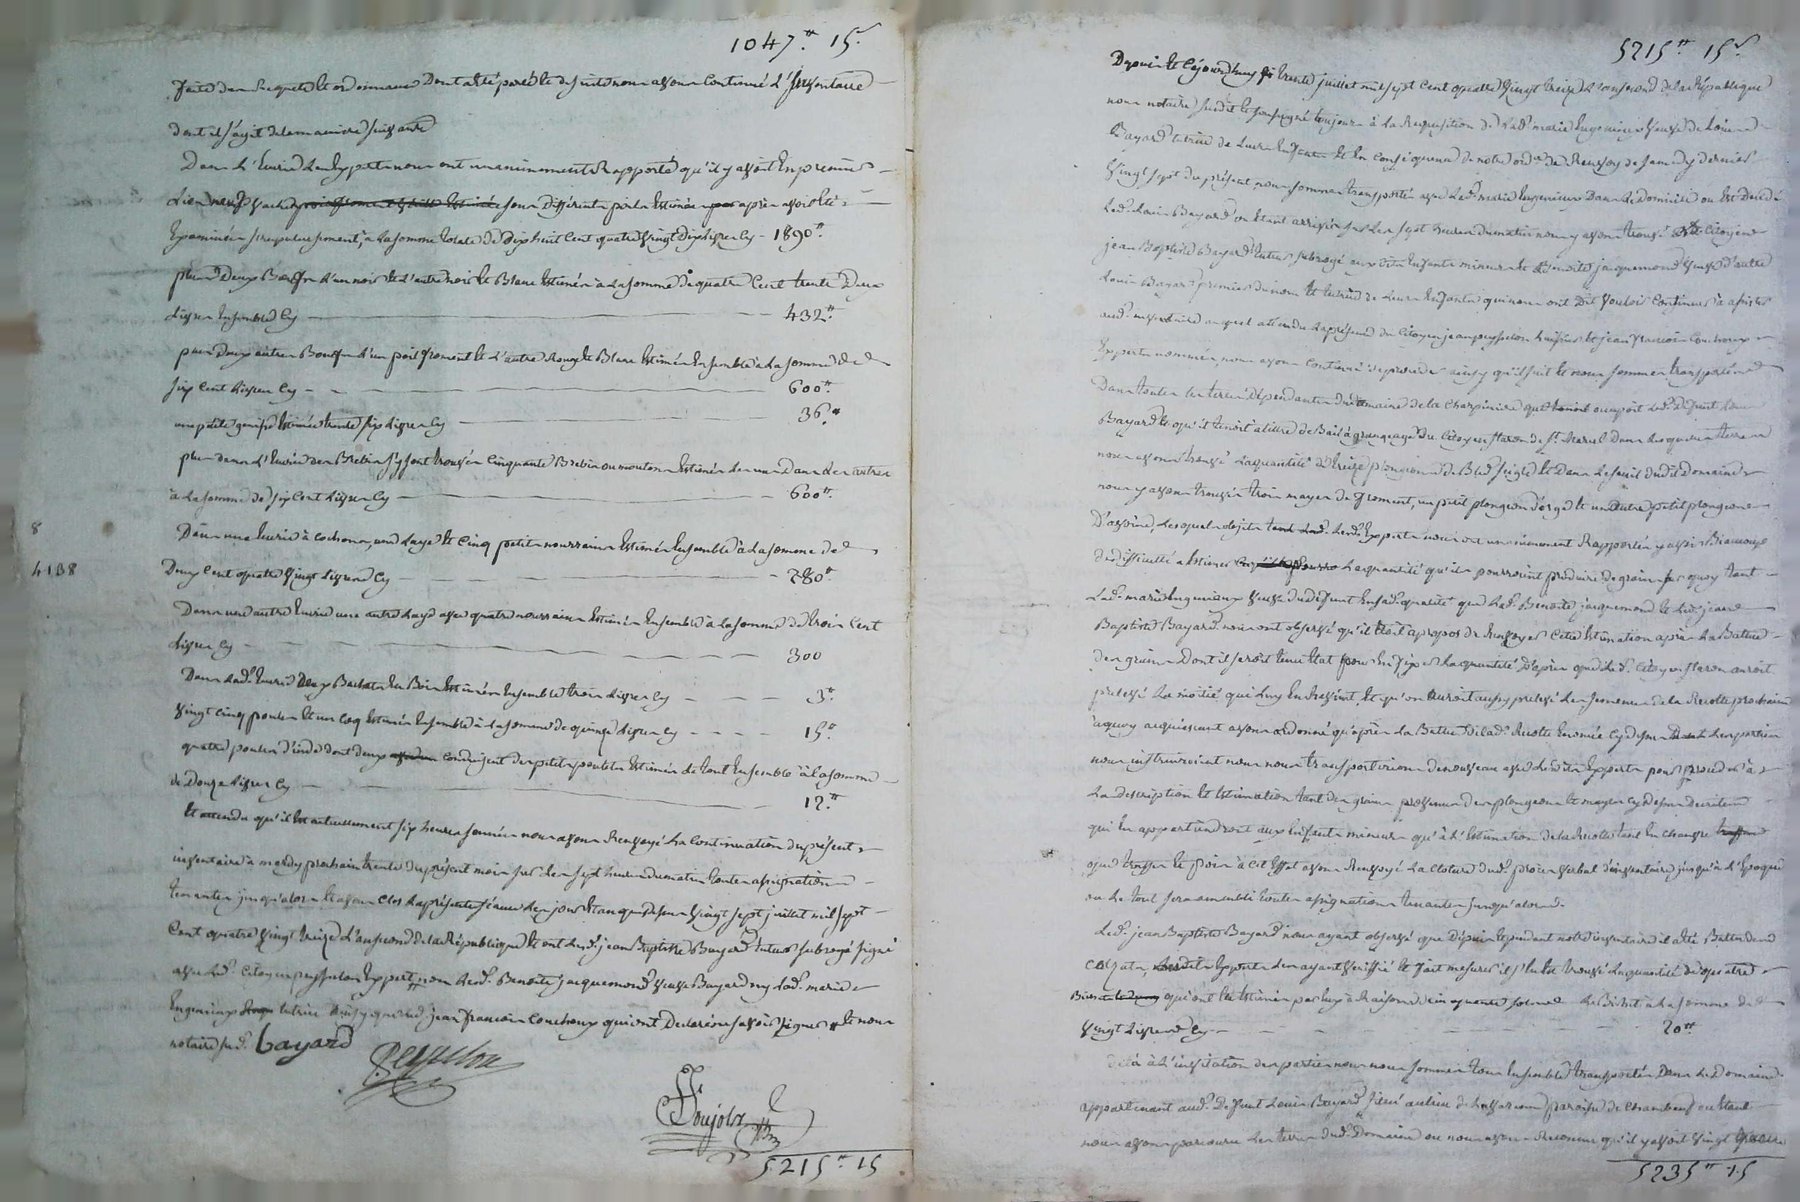 1047ᵗᵗ 15ˢ
faite des Requete et ordonnance Dont acte paré et de suite nous avons Continué L'Inventaire
dont il s'agit de la maniere suivante
Dans L'Ecurie Les Experts nous ont unanimement Rapporté qu'il y avoit En premier
Lieu neuf vaches sous Différents poils Estimées après avoir été
Examinées scrupuleusement, à la somme totale de Dix huit Cent quatre vingt Dix Livres Cy - 1890ᵗᵗ
plus Deux Bœufs L'un noir et L'autre noir et Blanc Estimés à la somme de quatre Cent trente Deux
Livres Ensemble Cy 432ᵗᵗ
plus Deux autres Bœufs L'un poil froment et L'autre Rouge et Blanc Estimés Ensemble à la somme de
six Cent Livres Cy 600ᵗᵗ
une petite genisse Estimée trente six Livres Cy 36ᵗᵗ
plus dans L'Ecurie des Brebis s'y sont trouvés Cinquante Brebis ou moutons Estimés Les uns Dans Les autres
à la somme de six Cent Livres Cy 600ᵗᵗ
8
Dans une Ecurie à Cochons, une Laye et Cinq petits nourrains Estimés Ensemble à la somme de
4138
Deux Cent quatre vingt Livres Cy 280ᵗᵗ
Dans une autre Ecurie une autre Laye avec quatre nourrains Estimés Ensemble à la somme de trois Cent
Livres Cy 300
Dans Lad. Ecurie Deux Bachats En Bois Estimés Ensemble trois Livres Cy 3ᵗᵗ
vingt Cinq poules et un Coq Estimés Ensemble à la somme de quinze Livres Cy 15ᵗᵗ
quatre poules d'inde dont deux conduisent des petits poulets Estimés Le tout Ensemble à la somme
de Douze Livres Cy 12ᵗᵗ
Et attendu qu'il Est actuellement six heures sonnées nous avons Renvoyé La Continuation du présent
inventaire à mardy prochain trente du présent mois sur Les sept heures du matin toutes assignations
tenantes jusqu'alors Et avons Clos La présente séance Les jour Et an que Dessus vingt sept juillet mil sept
Cent quatre vingt treize L'an second de la République Et ont Led. jean Baptiste Bayard tuteur subrogé signé
avec Led. Citoyen peysselon Expert, non Lad. Benoite jacquemond veuve Bayard ny Lad. marie
Engenieux tutrice ainsy que Led. jean francois Couchoux qui ont Declaré ne savoir signer et nous
notaire sud. Bayard
Peysselon
5215ᵗᵗ 15
5215ᵗᵗ 15ˢ
Depuis et Cejourd'huy trente juillet mil sept Cent quatre vingt treize L'an second de la République
nous notaire susdit et soussigné toujours à La Requisition de Lad. marie Engenieux veuve de Louis
Bayard tutrice de Leurs Enfants Et En Consequence de notre ordᶜᵉ de Renvoy de samedy dernier
vingt sept du présent nous sommes transportés avec Lad. marie Engenieux Dans Le Domicile où Est Decedé
Led. Louis Bayard où Etant arrivés sur Les sept heures du matin nous y avons trouvé Citoyens
jean Baptiste Bayard tuteur subrogé aux dits Enfants mineurs Et Benoite jacquemond veuve d'autre
Louis Bayard premier du nom Et tutrice de Leurs Enfants qui nous ont Dit vouloir Continuer à assister
aud. inventaire auquel attendu La présence des Citoyens jean peysselon et jean francois Couchoux
Experts nommés, nous avons Continué de proceder ainsy qu'il suit Et nous sommes transportés
Dans toutes Les terres Dépendantes du domaine de la Charpiniere qu'occupoit Led. Defunt Louis
Bayard Et qu'il tenoit à titre de Bail à grangeage du Citoyen staron de Sᵗ Marcel Dans Lesquelles terres
nous avons trouvé La quantité de treize plongeons de Bled seigle Et Dans Le suil dudit Domaine
nous y avons trouvés trois mayes de froment, un petit plongeon d'orge Et un autre petit plongeon
D'avoine Lesquels objets Lesd. Experts nous ont unanimement Rapportés y avoir Beaucoup
de difficulté à Estimer La quantité qu'ils pourroient produire de grains sur quoy tant
Lad. marie Engenieux veuve dud. Defunt En sad. qualité que Lad. Benoite jacquemond et Led. jean
Baptiste Bayard nous ont observé qu'il Etoit apropos de Renvoyer Cette Estimation après La Battue
des grains Dont il seroit tenu Etat pour En fixer La quantité D'après que Led. Citoyen staron auroit
prelevé La moitié qui Luy En Revient, Et qu'on auroit aussy prelevé Les semences de la Recolte prochaine
à quoy acquiesçant avons ordonné qu'après La Battue de Lad. Recolte Enoncée Cy dessus Les parties
nous instruiroient nous nous transporterions de nouveau avec Lesdits Experts pour proceder à
La description Et Estimation tant des grains provenus des plongeons Et mayes Cy dessus Decrites
qui En appartiendront aux Enfants mineurs qu'à L'Estimation de la Recolte tant En chanvre
que treffle Et foin à Cet Effet avons Renvoyé La Cloture dud. procès verbal d'inventaire jusqu'à L'Epoque
où Le tout sera assemblé toutes assignations tenantes jusqu'alors.
Led. jean Baptiste Bayard nous ayant observé que Depuis Cependant notre inventaire il a été Battu des
Colzats, Lesdits Experts Les ayant verifié Et fait mesurer il s'En Est trouvé La quantité de quatre
Bichets qui ont été Estimés par Eux à Raison de Cinquante sols Le Bichet à La somme de
vingt Livres Cy 20ᵗᵗ
delà à L'invitation des parties nous nous sommes tous Ensemble transportés Dans Le Domaine
appartenant aud. Defunt Louis Bayard situé au Lieu de paroisse de Chambeuf où Etant
nous avons parcouru Les terres dud. Domaine où nous avons Reconnu qu'il y avoit vingt
5235ᵗᵗ 15